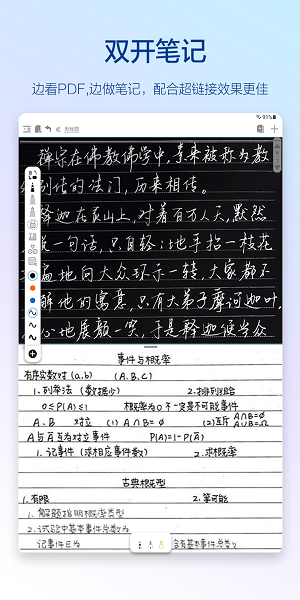 双开笔记
边看PDF,边做笔记，配合超链接效果更佳
91%
未标题
禅宗在佛教佛学中,素来被称为教
别传的法门,历来相传。
释迦在灵山上,对着百万人天,默然
一句话,只自轻地手拈一枝花
遍地向大众环示一转,大家都不
解他的寓意,只有大弟子摩诃迦叶,
心地展颜一笑,于是释迦便当众
事件与概率
有序实数对(a,b) (A,B,C)
1.列举法(数据少) 2.排列组合
0≤P(A)≤1 概率为0不一定是不可能事件
A、B 对立 (1) A∩B=φ (2)互斥 A∩B=φ
A∪B=Ω
A与Ā互为对立事件 P(A)=1-P(Ā)
1.记事件(求相应事件数) 2.求概率
古典概型
1.有限 2.等可能
1.解题指明概率类型
2.试验中基本事件总数为
记事件E为 含有基本事件总数